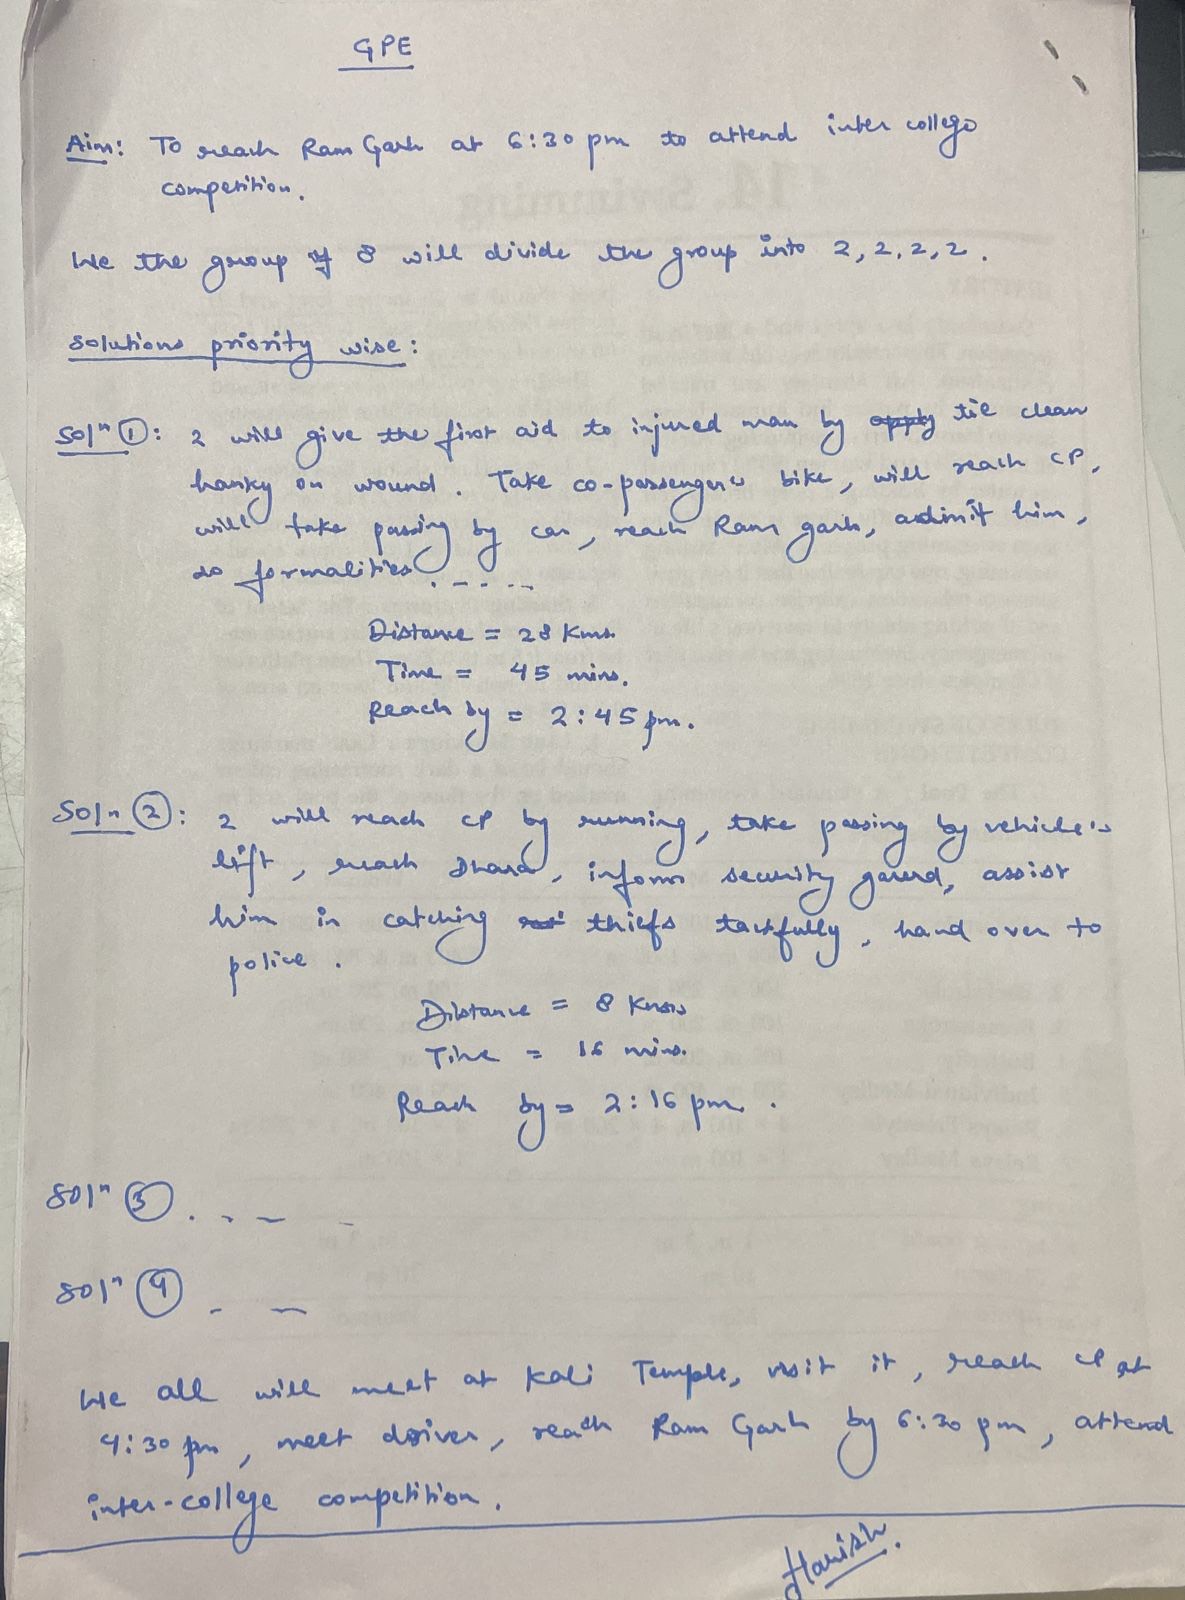 GPE
Aim: To reach Ram Garh at 6:30 pm to attend inter college
competition.
We the group of 8 will divide the group into 2, 2, 2, 2.
Solutions priority wise:
Solⁿ ①: 2 will give the first aid to injured man by apply tie clean
hanky on wound. Take co-passengers bike, will reach CP,
will take passing by car, reach Ram garh, admit him,
do formalities . - . - -
Distance = 28 Kms.
Time = 45 mins.
Reach by = 2:45 pm.
Soln ②: 2 will reach CP by running, take passing by vehicle's
lift, reach Dhara, inform security gaurd, assist
him in catching thiefs tactfully, hand over to
police.
Distance = 8 Kms
Time = 16 mins.
Reach by = 2:16 pm.
Solⁿ ③ . - - -
Solⁿ ④ . - -
We all will meet at Kali Temple, visit it, reach CP at
4:30 pm, meet driver, reach Ram Garh by 6:30 pm, attend
inter-college competition.
Harish.